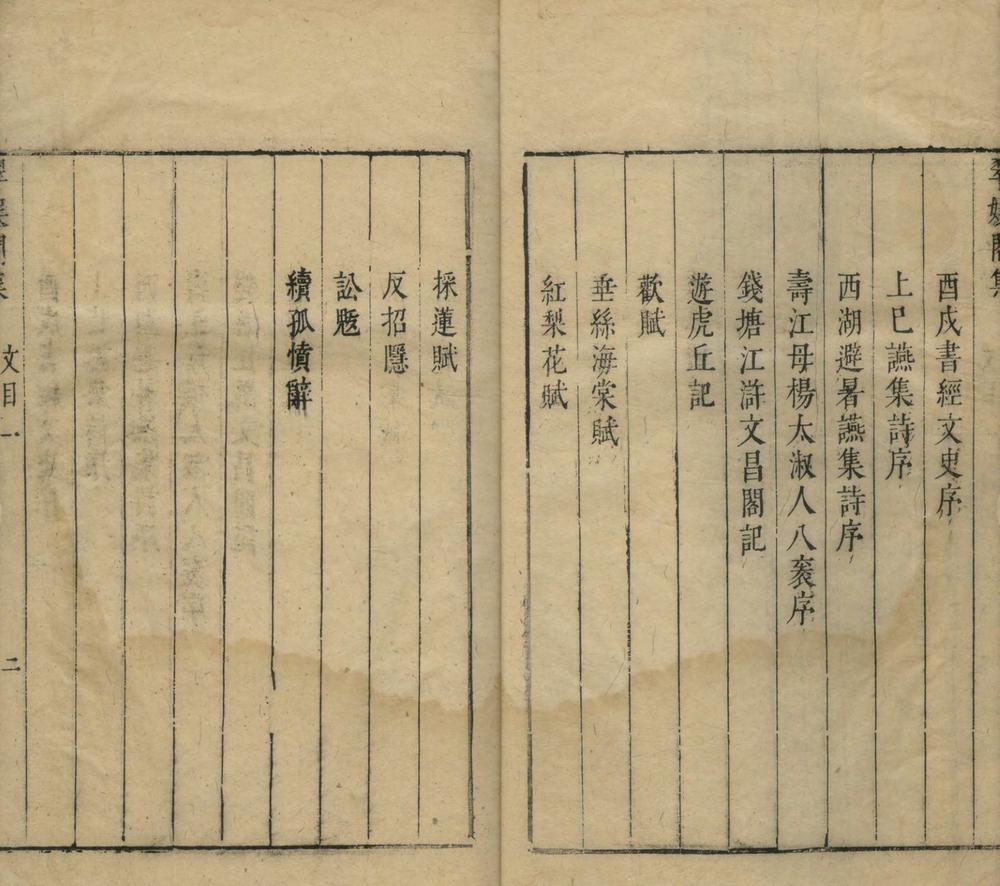 翠娛閣集
酉戌書經文史序
上巳讌集詩序
西湖避暑讌集詩序
壽江母楊太淑人八袠序
錢塘江滸文昌閣記
遊虎丘記
歡賦
垂絲海棠賦
紅梨花賦
採蓮賦
反招隱
訟
續孤憤辭
翠娛閣集 文目一 二